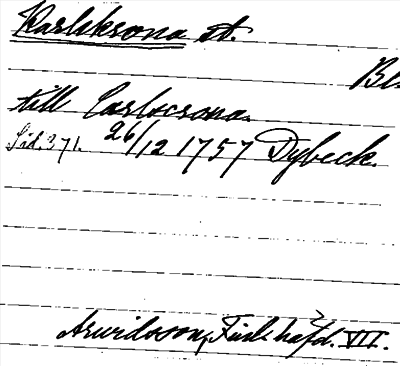 Karlskrona st.
Bl.
till Carlscrona.
Sid. 371. 26/12 1757 Dybeck.
Arwidsson, Förteckn. VII.